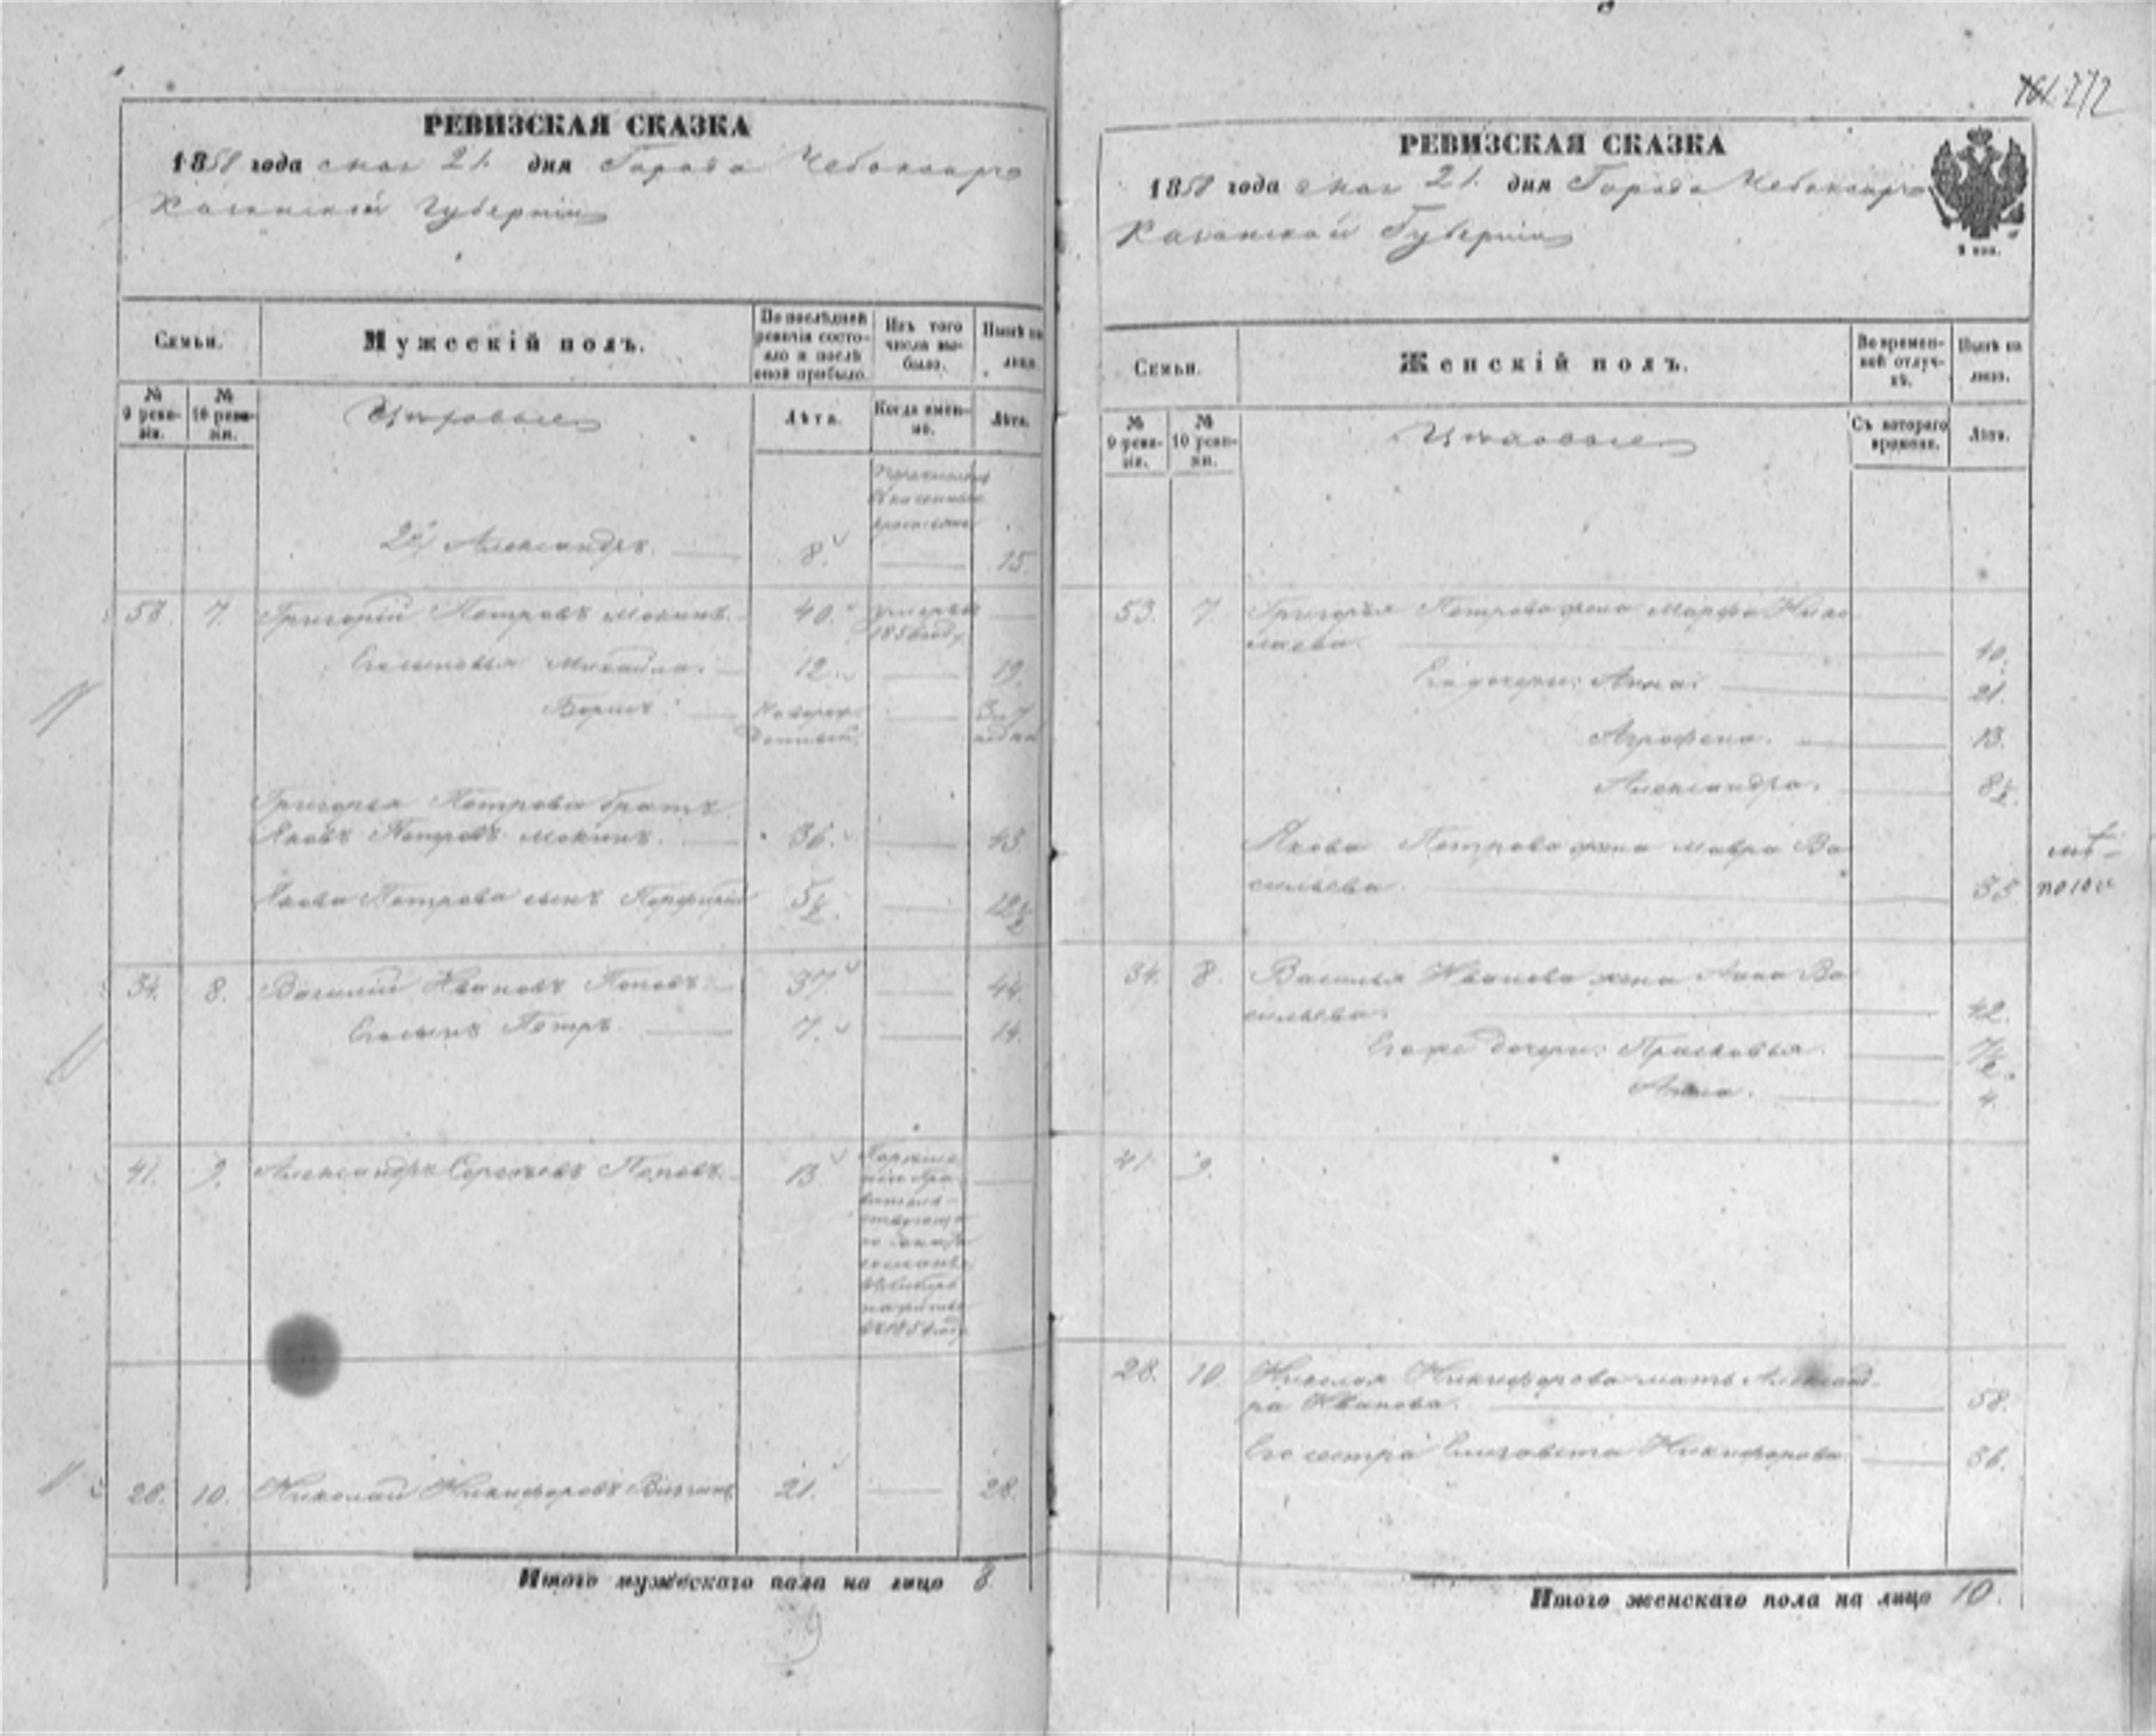 РЕВИЗСКАЯ СКАЗКА
1858 года мая 21. дня Города Чебоксаръ
Казанской Губерніи
Семьи.
Мужескій полъ.
По послѣдней ревизіи состояло и послѣ оной прибыло.
Изъ того числа выбыло.
Нынѣ на лицо.
№ 9 ревизіи.
№ 10 ревизіи.
Цѣховые
Лѣта.
Когда именно.
Лѣта.
2й Александръ. 8. 15.
53. 7. Григорій Петровъ Мокинъ. 40. умеръ
1856 году
Его сыновья Михайла. 12. 19.
Борисъ. Новорож-
денный. 3 и 7
недель
Григорья Петрова братъ
Яковъ Петровъ Мокинъ. 36. 43.
Якова Петрова сынъ Порфирій 5½. 12½
34. 8. Василій Ивановъ Поповъ. 37. 44.
Его сынъ Петръ. 7. 14.
41. 9. Александръ Сергѣевъ Поповъ. 13.
28. 10. Николай Никифоровъ 21. 28.
Итого мужескаго пола на лицо 8.
272
РЕВИЗСКАЯ СКАЗКА
1858 года мая 21. дня Города Чебоксаръ
Казанской Губерніи
Семьи.
Женскій полъ.
Во временной отлучкѣ.
Нынѣ на лицо.
№ 9 ревизіи.
№ 10 ревизіи.
Цѣховые
Съ котораго времени.
Лѣта.
53. 7. Григорья Петрова жена Марфа Нико-
лаева. 40.
Его дочери: Анна. 21.
Агрофена. 13.
Александра. 8½.
Якова Петрова жена Мавра Ва-
сильева. 35
34. 8. Василья Иванова жена Анна Ва-
сильева. 42.
Его же дочери: Прасковья. 7½.
Анна. 4.
41. 9.
28. 10. Николая Никифорова мать Александ-
ра Иванова. 58.
Его сестра Елизавета Никифорова 36.
Итого женскаго пола на лицо 10.